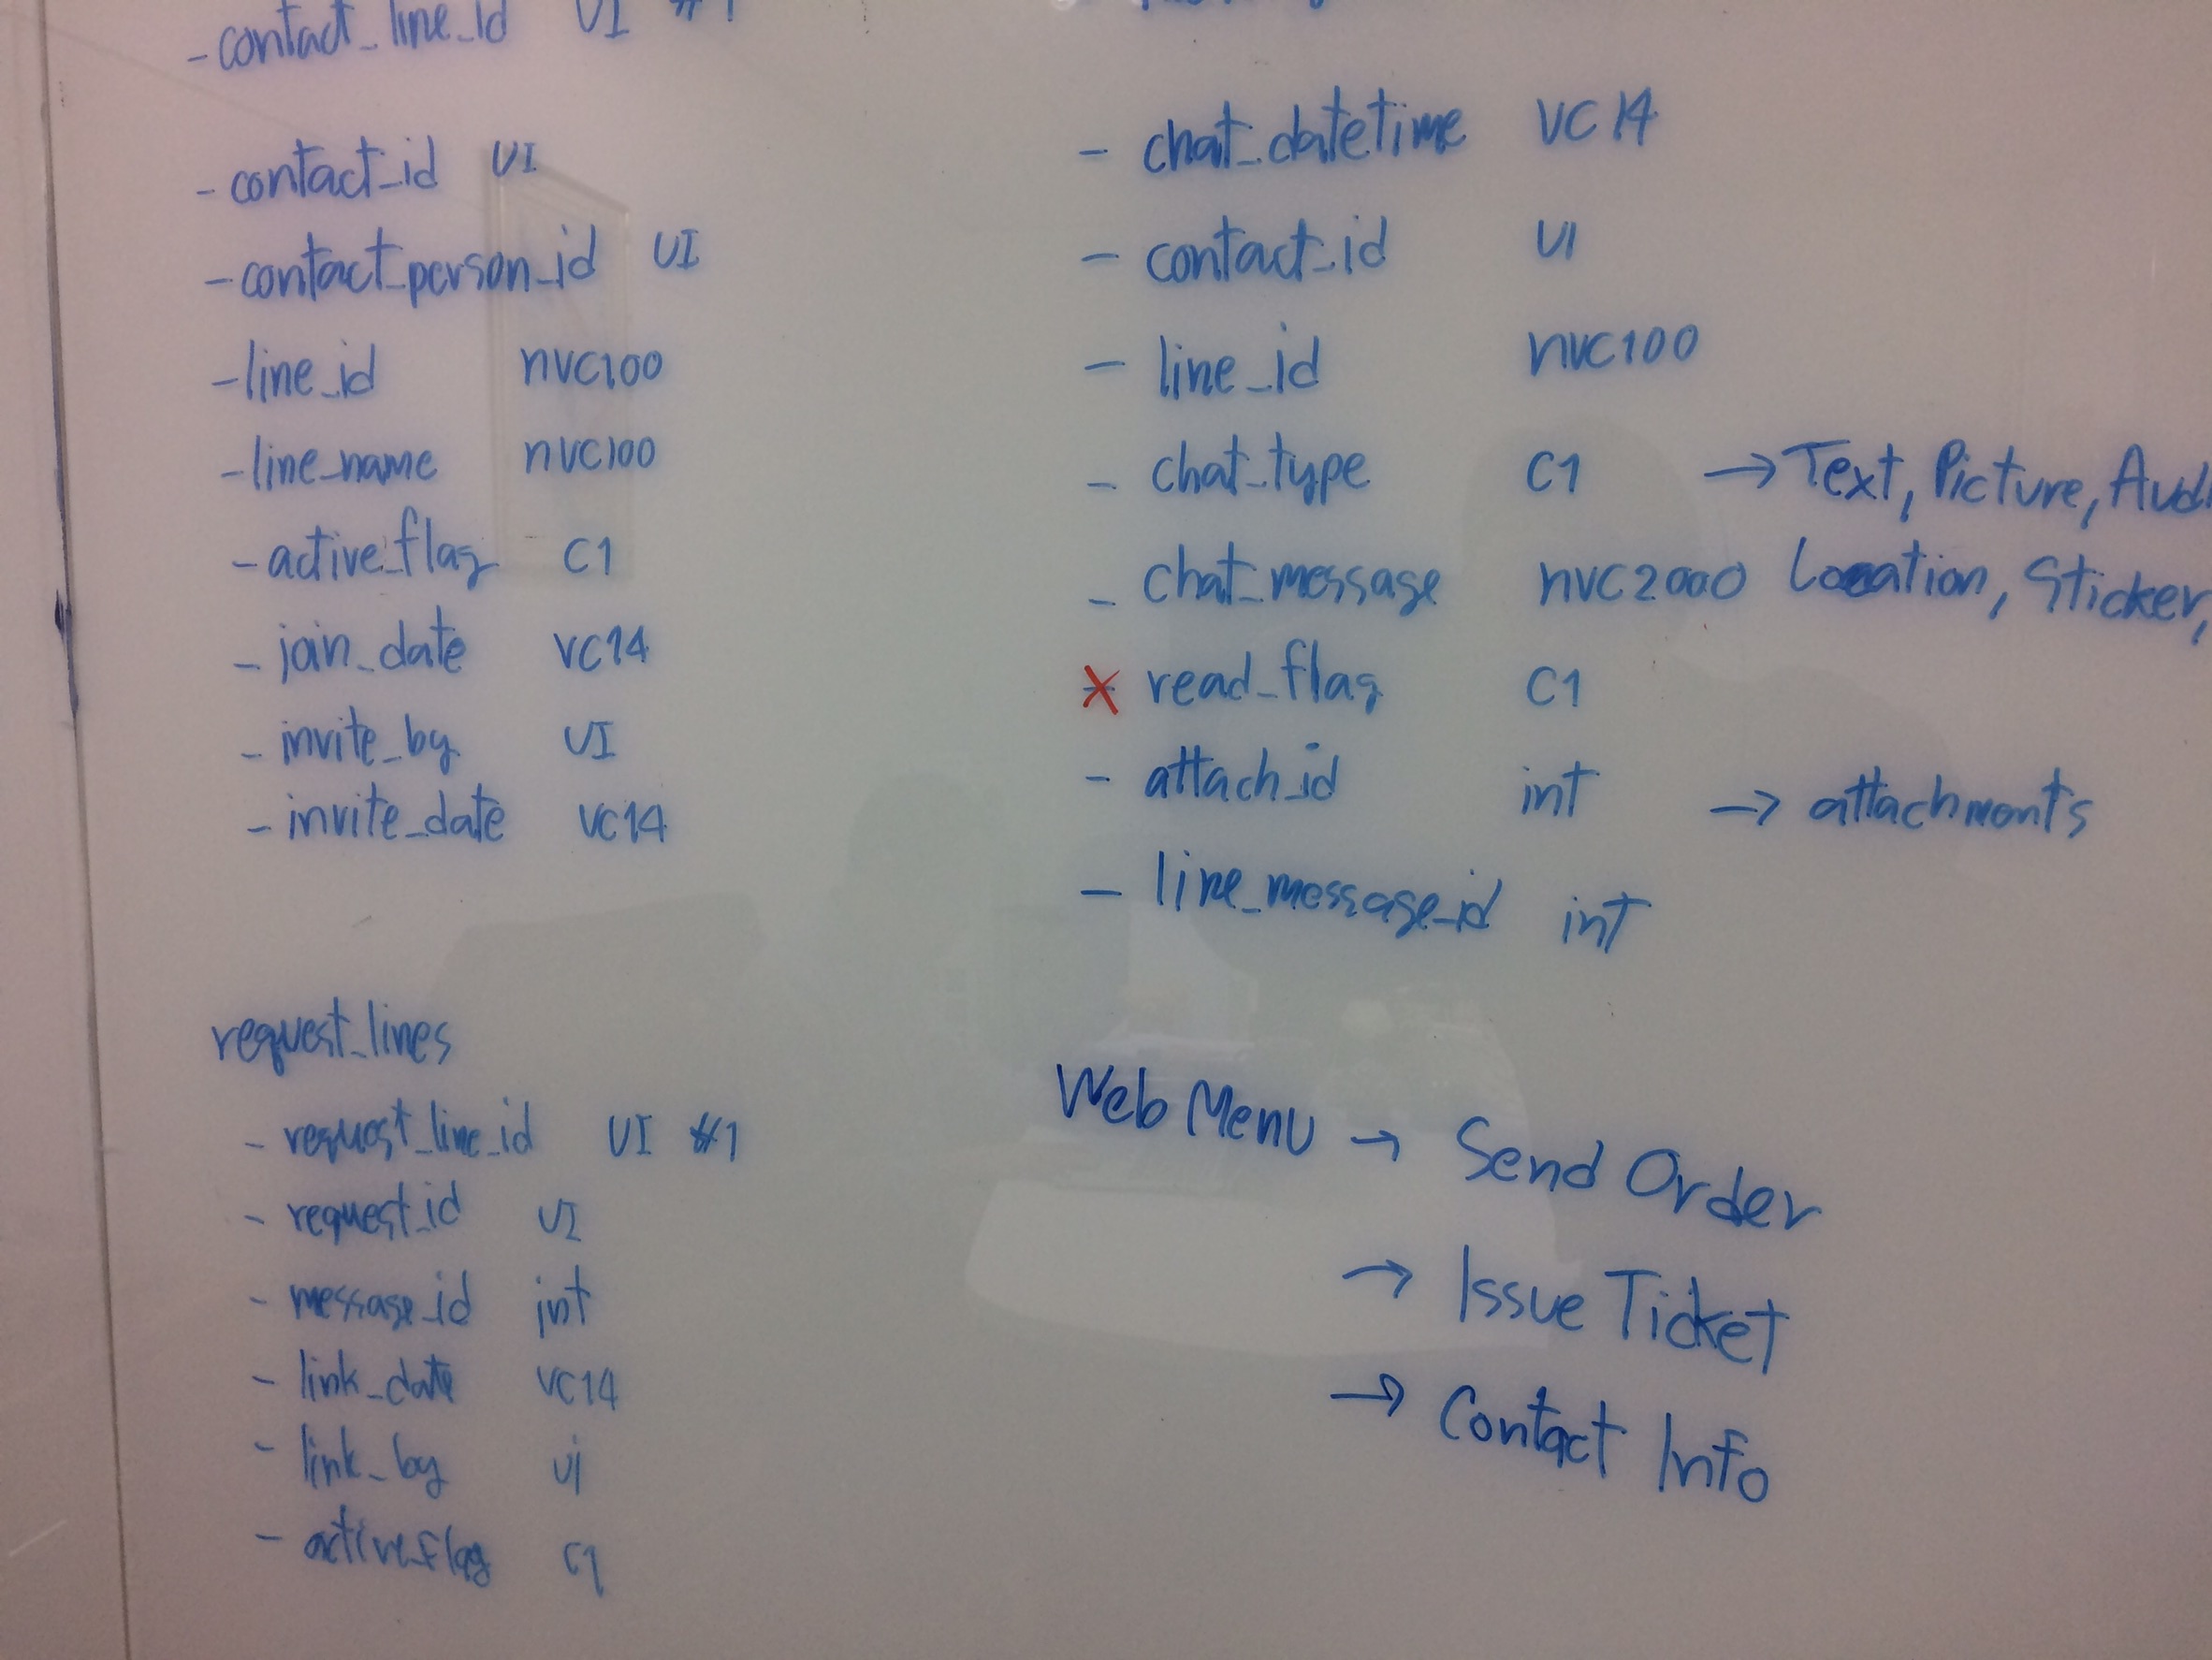 - contact_line_id UI #1
- contact_id UI
- contact_person_id UI
- line_id nvc100
- line_name nvc100
- active_flag C1
- join_date vc14
- invite_by UI
- invite_date vc14
request_lines
- request_line_id UI #1
- request_id UI
- message_id int
- link_date vc14
- link_by ui
- active_flag c1
- chat_datetime vc14
- contact_id UI
- line_id nvc100
- chat_type C1 → Text, Picture, Aud
- chat_message nvc2000 Location, Sticker,
x read_flag C1
- attach_id int → attachments
- line_message_id int
Web Menu → Send Order
→ Issue Ticket
→ Contact Info